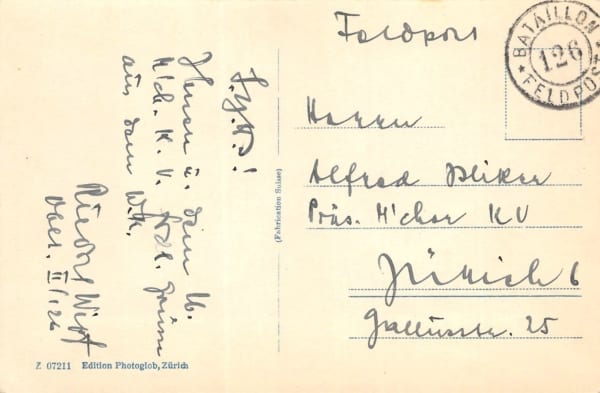 Feldpost
BATAILLON
126
FELDPOST
Herrn
Alfred
Präs. M'chor KV
Zürich 6
Gallusstr. 25
Ihnen u. dem lb.
M'ch. K. V. frdl. Grüsse
aus dem W.K.
Rudolf Wipf
Ober. II/126
(Fabrication Suisse)
Z 07211 Edition Photoglob, Zürich